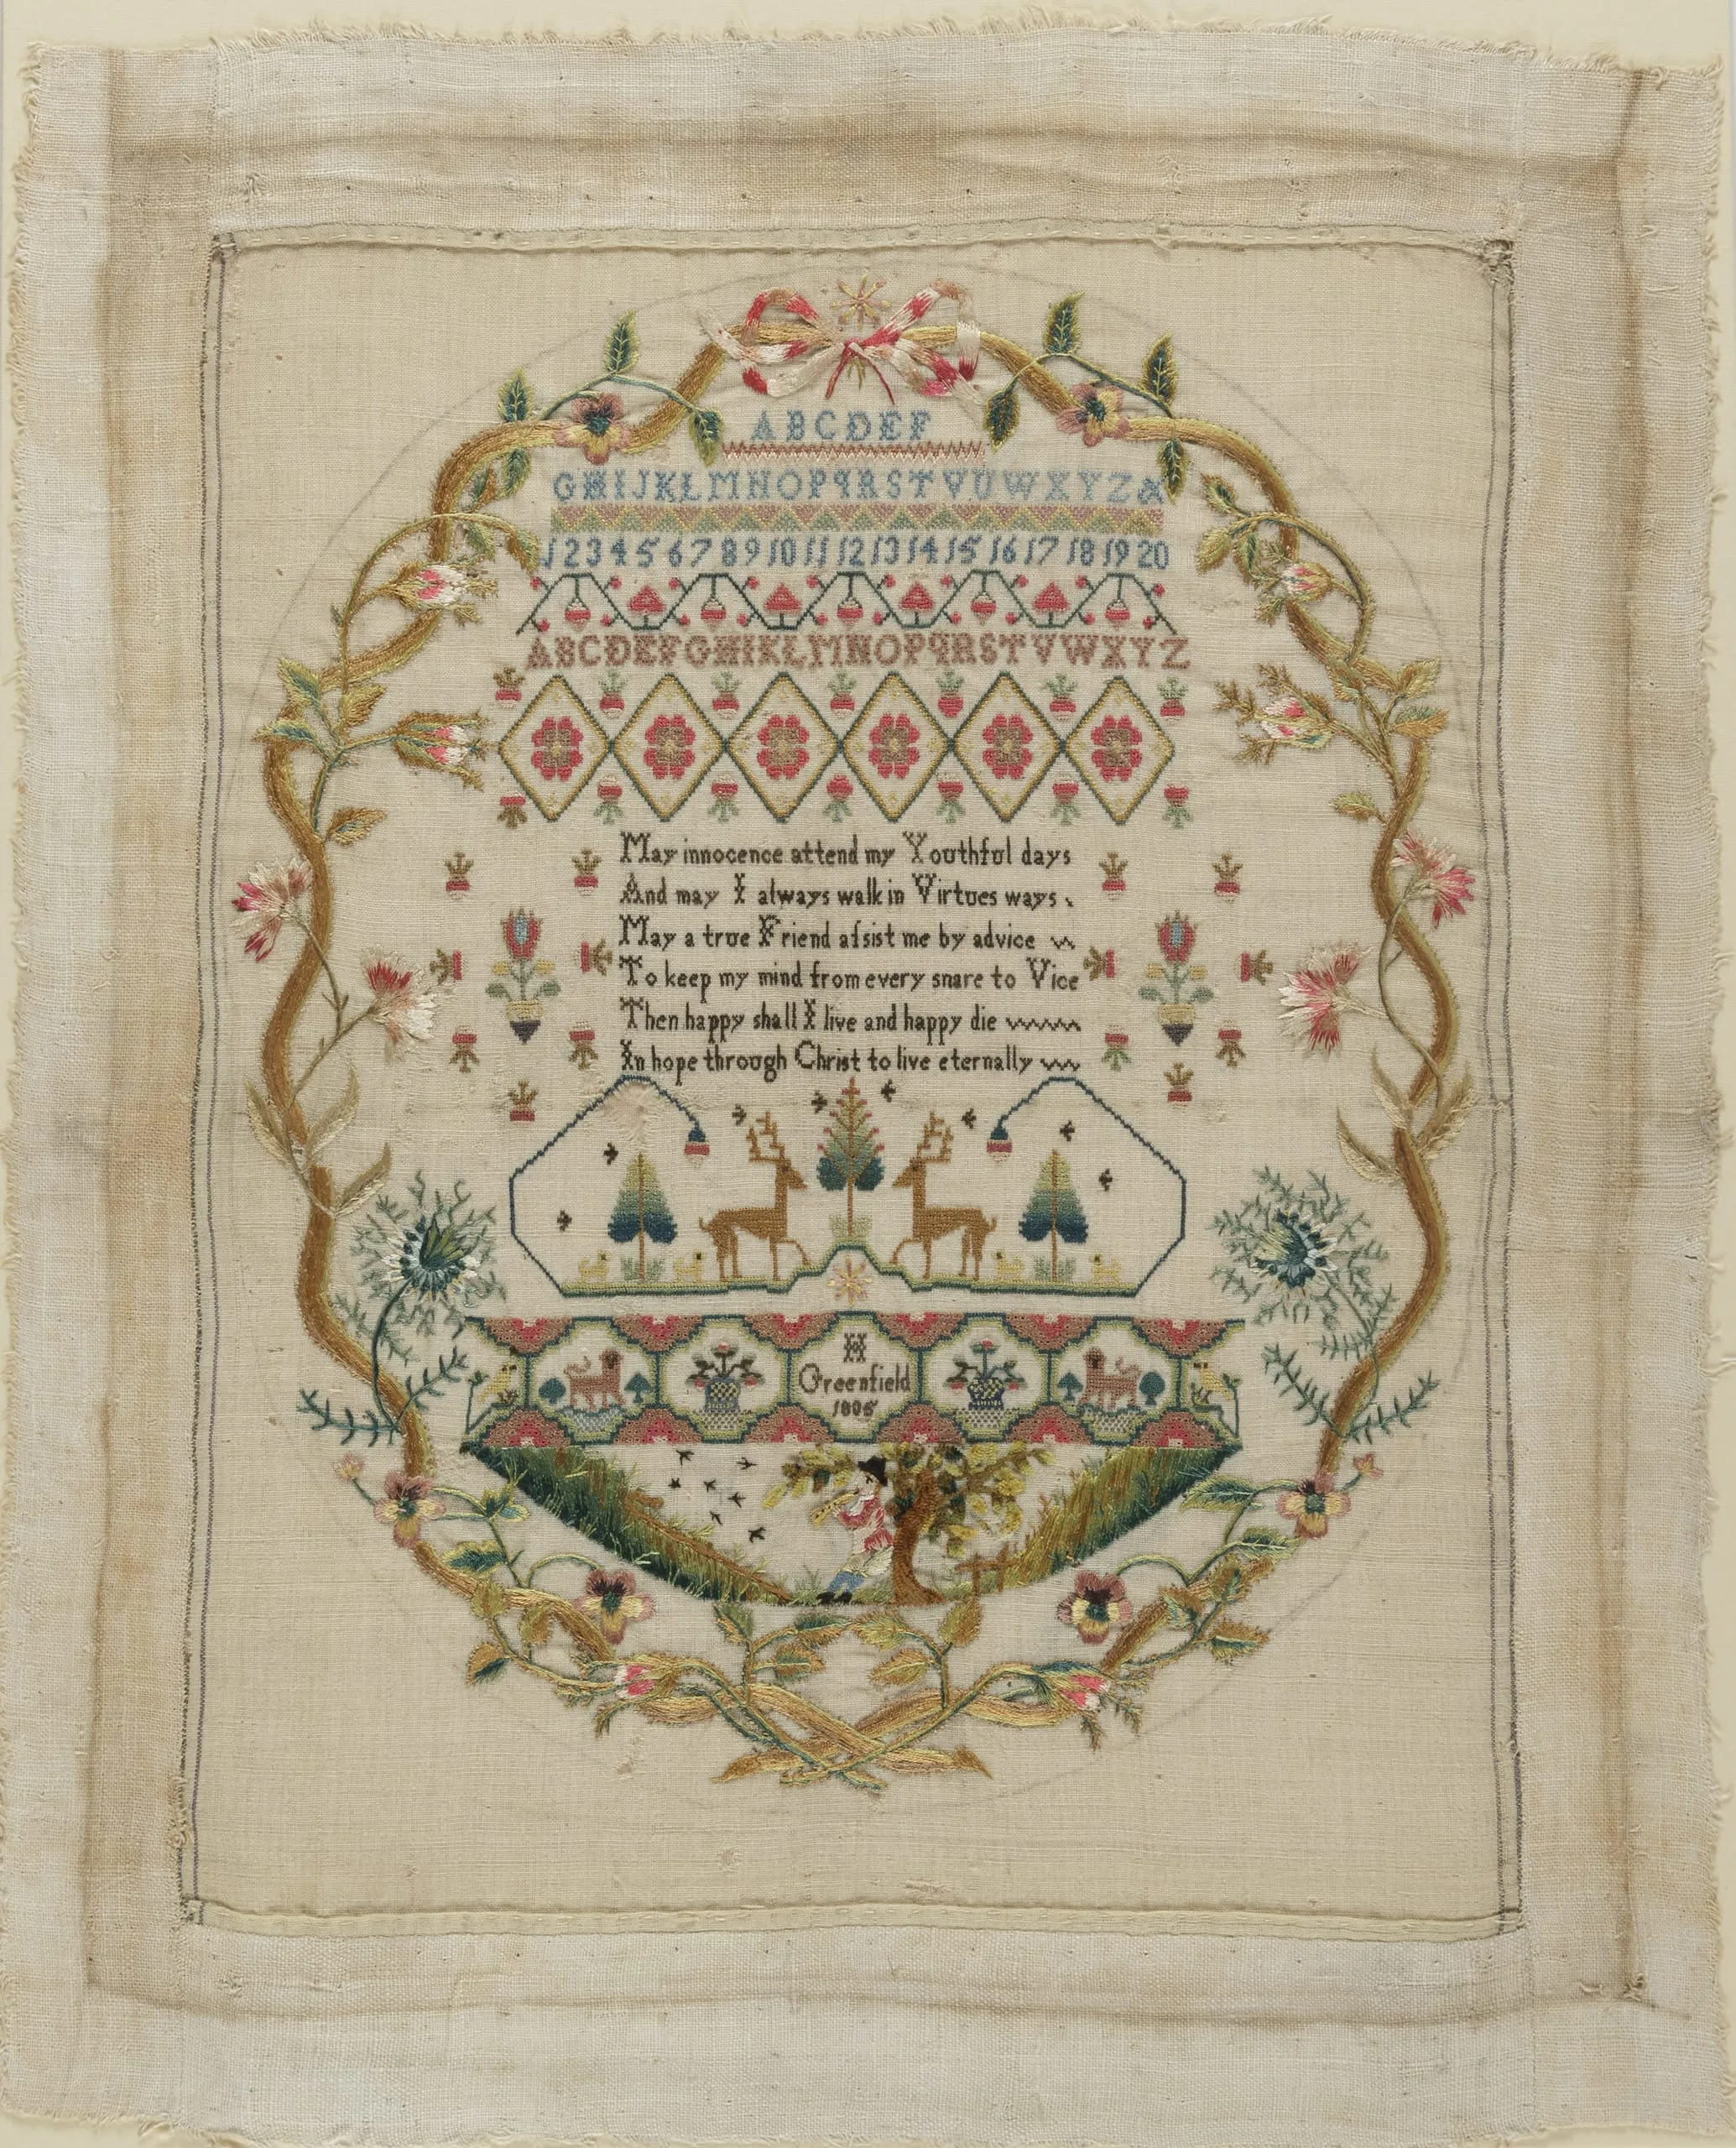 ABCDEF
GHIJKLMNOPQRSTVUWXYZ&
1 2 3 4 5 6 7 8 9 10 11 12 13 14 15 16 17 18 19 20
ABCDEFGHIKLMNOPQRSTVWXYZ
May innocence attend my Youthful days
And may I always walk in Virtues ways
May a true Friend aſsist me by advice
To keep my mind from every snare to Vice
Then happy shall I live and happy die
In hope through Christ to live eternally
H
Greenfield